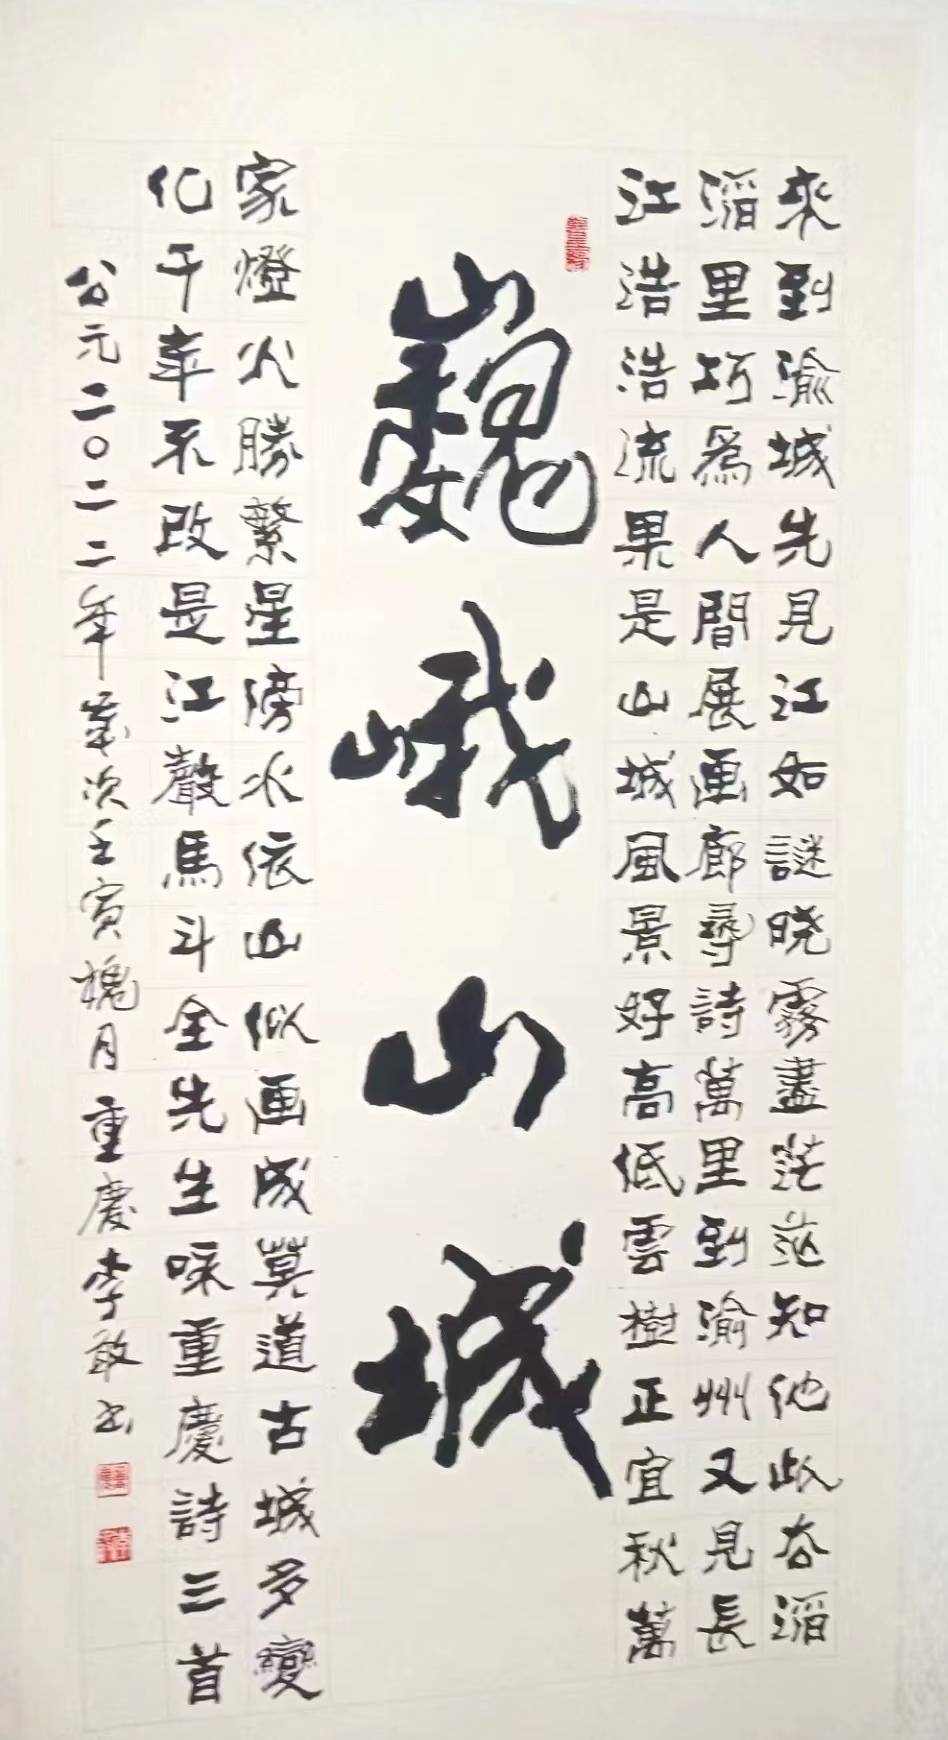 來到渝城先見江如謎晓霧盡茫茫知他此去滔
滔里巧為人間展画廊尋詩萬里到渝州又見長
江浩浩流果是山城風景好高低雲樹正宜秋萬
巍峨山城
家燈火勝繁星傍水依山似画成莫道古城多變
化千年不改是江聲馬斗全先生咏重慶詩三首
公元二〇二二年歲次壬寅槐月重慶李敢书